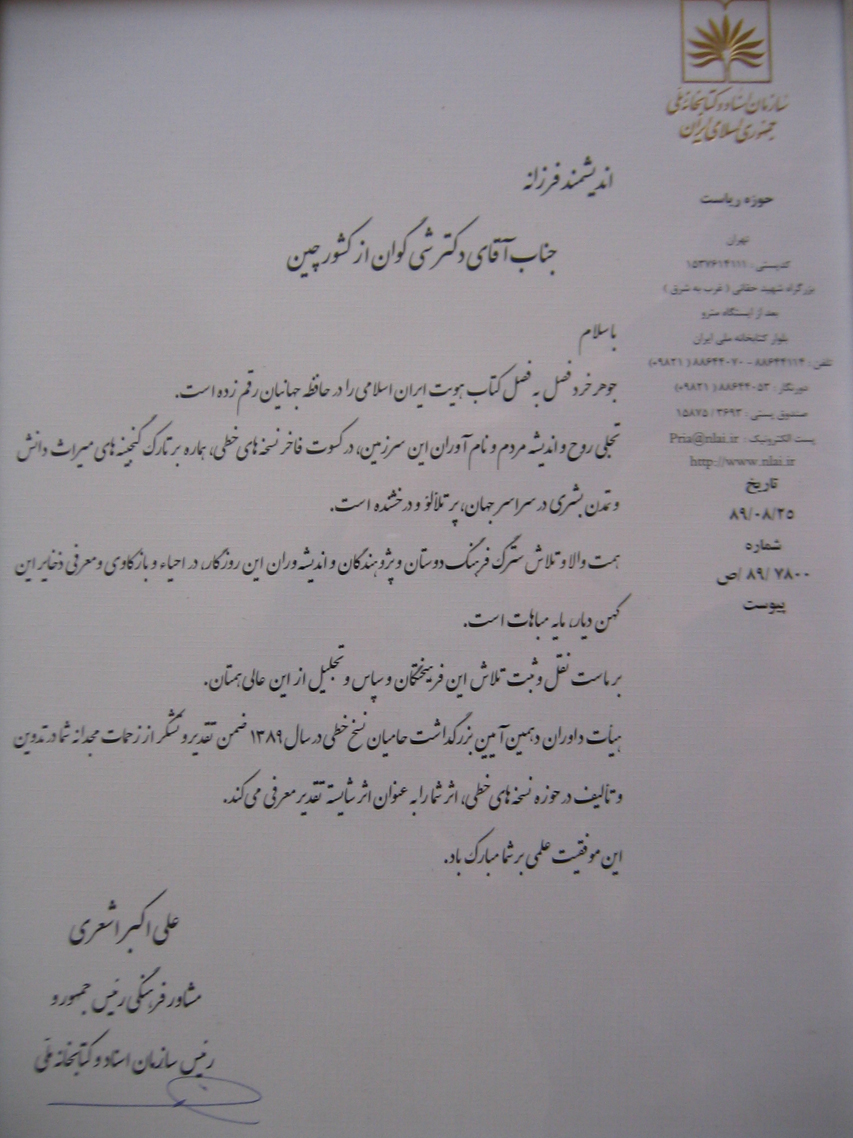 سازمان اسناد و کتابخانه ملی
جمهوری اسلامی ایران
حوزه ریاست
تهران
کدپستی : ۱۵۳۷۶۱۴۱۱۱
بزرگراه شهید حقانی ( غرب به شرق )
بعد از ایستگاه مترو
بلوار کتابخانه ملی ایران
تلفن : ۸۸۶۴۴۱۱۴ - ۸۸۶۴۴۰۷۰ (۰۹۸۲۱)
دورنگار : ۸۸۶۴۴۰۵۳ (۰۹۸۲۱)
صندوق پستی : ۳۶۹۳ / ۱۵۸۷۵
پست الکترونیک : Pria@nlai.ir
http://www.nlai.ir
تاریخ
۸۹/۰۸/۲۵
شماره
۷۸۰۰ /۸۹ /ص
پیوست
اندیشمند فرزانه
جناب آقای دکتر شی گوان از کشور چین
با سلام
جوهر خرد فصل به فصل کتاب هویت ایران اسلامی را در حافظه جهانیان رقم زده است.
تجلی روح و اندیشه مردم و نام آوران این سرزمین، در کسوت فاخر نسخه های خطی، هماره بر تارک گنجینه های میراث دانش
و تمدن بشری در سراسر جهان، پر تلألؤ و درخشنده است.
همت والا و تلاش سترگ فرهنگ دوستان و پژوهندگان و اندیشه وران این روزگار، در احیاء و بازکاوی و معرفی ذخایر این
کهن دیار، مایه مباهات است.
بر ماست نقل و ثبت تلاش این فرهیختگان و سپاس و تجلیل از این عالی همتان.
هیأت داوران دهمین آیین بزرگداشت حامیان نسخ خطی در سال ۱۳۸۹ ضمن تقدیر و تشکر از زحمات مجدانه شما در تدوین
و تألیف در حوزه نسخه های خطی، اثر شما را به عنوان اثر شایسته تقدیر معرفی می کند.
این موفقیت علمی بر شما مبارک باد.
علی اکبر اشعری
مشاور فرهنگی رئیس جمهور و
رئیس سازمان اسناد و کتابخانه ملی